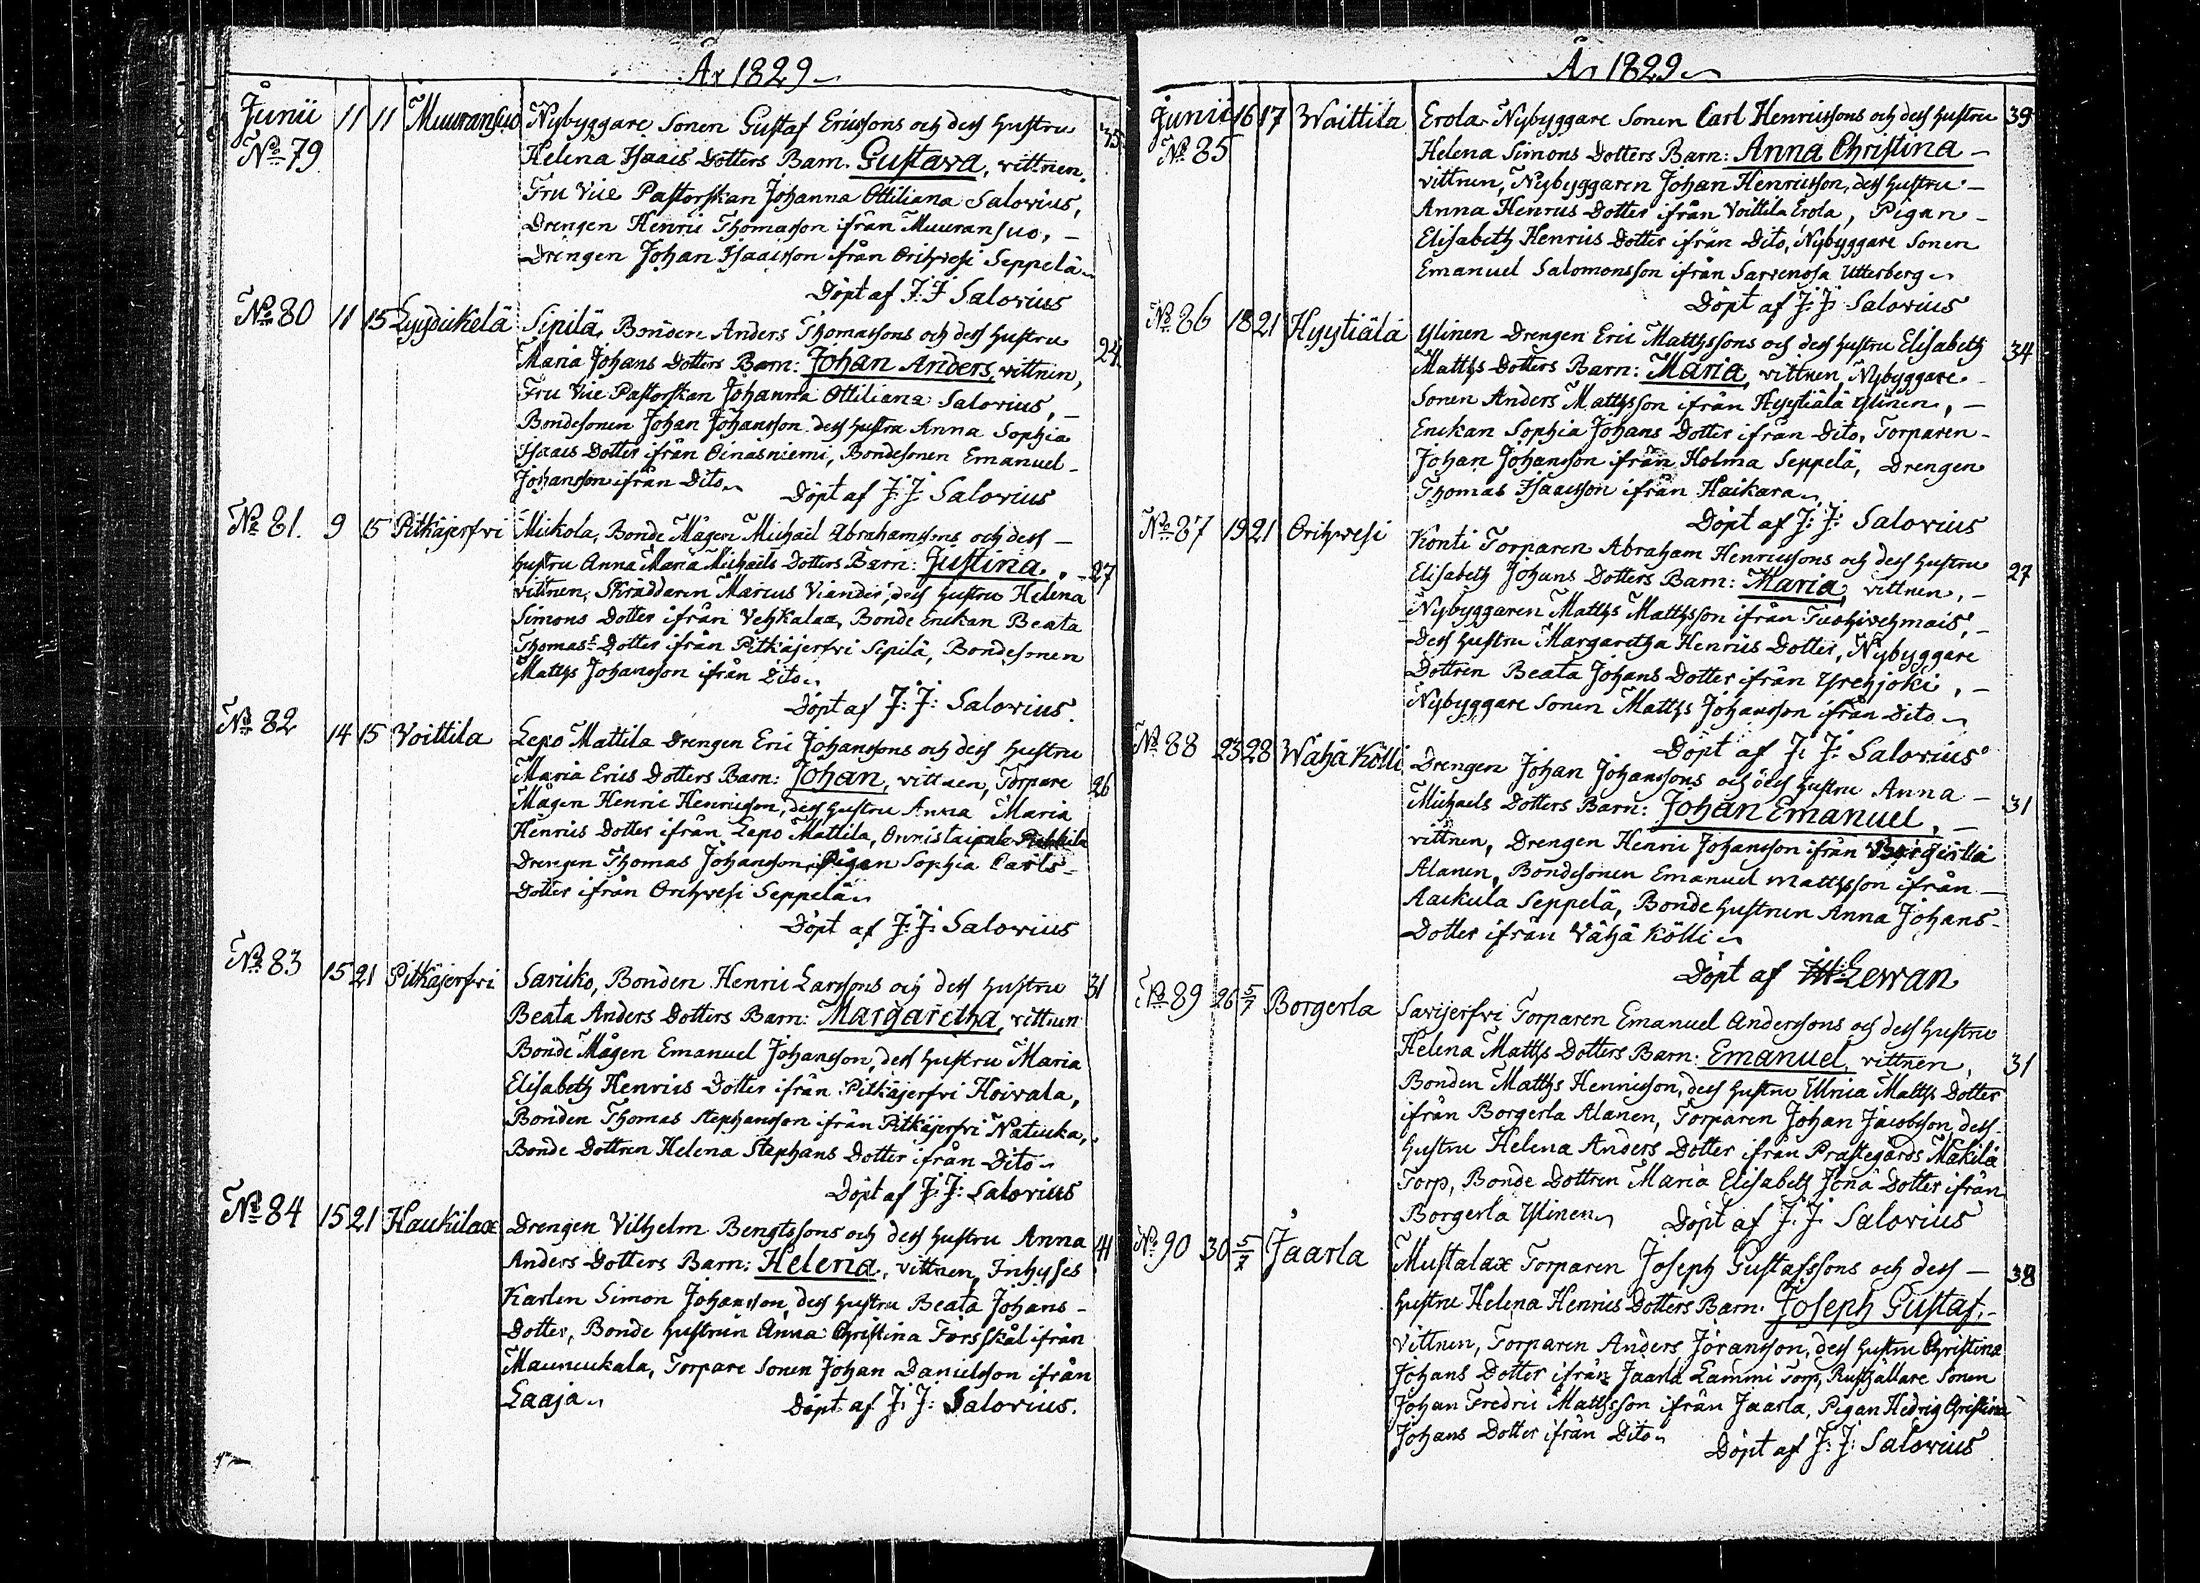 År 1829
Junii 11 11 Muuransuo Nybyggare Sonen Gustaf Ericssons och dess hustru 35
No 79 Helena Isaacs Dotters Barn. Gustava, vittnen,
Fru Vice Pastorskan Johanna Ottiliana Salovius,
Drengen Henric Thomasson ifrån Muuransuo, –
Drengen Johan Isaacsson ifrån Orihvesi Seppelä
Döpt af J: J Salovius
No 80 11 15 Lyydikelä Sipilä, Bonden Anders Thomassons och dess hustru 24
Maria Johans Dotters Barn: Johan Anders, vittnen,
Fru Vice Pastorskan Johanna Ottiliana Salovius, –
Bondesonen Johan Johansson dess hustru Anna Sophia
Isaacs Dotter ifrån Oinasniemi, Bondesonen Emanuel
Johansson ifrån Dito
Döpt af J: J: Salovius
No 81. 9 15 Pitkäjerfvi Mickola, Bonde Mågen Michael Abrahamssons och dess –
hustru Anna Maria Michaels Dotters Barn: Justina, – 27
vittnen, Skräddaren Marcus Viander, dess hustru Helena
Simons Dotter ifrån Vehkalax, Bonde Enckan Beata
Thomas Dotter ifrån Pitkäjerfvi Sipilä, Bondesonen
Matths Johansson ifrån Dito
Döpt af J: J: Salovius.
No 82 14 15 Voittila Lepo Mattila Drengen Eric Johanssons och dess hustru
Maria Erics Dotters Barn: Johan, vittnen, Torpare 26
Mågen Henric Henricsson, dess hustru Anna Maria
Henrics Dotter ifrån Lepo Mattila, Onnistaipale
Drengen Thomas Johansson, Pigan Sophia Carls
Dotter ifrån Orihvesi Seppelä
Döpt af J: J: Salovius
No 83 15 21 Pitkäjerfvi Saricko, Bonden Henric Larssons och dess hustru 31
Beata Anders Dotters Barn: Margaretha, vittnen
Bonde Mågen Emanuel Johansson, dess hustru Maria
Elisabeth Henrics Dotter ifrån Pitkäjerfvi Hoivala,
Bonden Thomas Stephansson ifrån Pitkäjerfvi Natucka,
Bonde Dottren Helena Stephans Dotter ifrån Dito
Döpt af J: J: Salovius
No 84 15 21 Haukilax Drengen Vilhelm Bengtssons och dess hustru Anna 41
Anders Dotters Barn: Helena, vittnen, Inhyses
Karlen Simon Johansson, dess hustru Beata Johans
Dotter, Bonde hustrun Anna Christina Forsskål ifrån
Mauncukala, Torpare Sonen Johan Danielsson ifrån
Laaja
Döpt af J: J: Salovius.
År 1829
Junii 16 17 Woittila Erola Nybyggare Sonen Carl Henricssons och dess hustru 39
No 85 Helena Simons Dotters Barn: Anna Christina –
vittnen, Nybyggaren Johan Henricsson, dess hustru –
Anna Henrics Dotter ifrån Voittila Erola, Pigan –
Elisabeth Henrics Dotter ifrån Dito, Nybyggare Sonen
Emanuel Salomonsson ifrån Sarvenosa Utterberg
Döpt af J: J: Salovius
No 86 18 21 Hyytiälä Ylinen Drengen Eric Matthssons och dess hustru Elisabeth 34
Matths Dotters Barn: Maria, vittnen Nybyggare
Sonen Anders Matthsson ifrån Hyytiälä Ylinen, –
Enckan Sophia Johans Dotter ifrån Dito, Torparen
Johan Johansson ifrån Holma Seppelä, Drengen
Thomas Isaacsson ifrån Haikara
Döpt af J: J: Salovius
No 87 19 21 Orihvesi Konti Torparen Abraham Henricssons och dess hustru 27
Elisabeth Johans Dotters Barn: Maria, vittnen, –
Nybyggaren Matths Matthsson ifrån Tuohivehmais, –
Dess hustru Margaretha Henrics Dotter, Nybyggare
Dottren Beata Johans Dotter ifrån Yrehjoki, –
Nybyggare Sonen Matths Johansson ifrån Dito
Döpt af J: J: Salovius
No 88 23 28 Wähä Kölli Drengen Johan Johanssons och dess hustru Anna –
Michaels Dotters Barn: Johan Emanuel, – 31
vittnen, Drengen Henric Johansson ifrån
Alanen, Bondesonen Emanuel Matthsson ifrån –
Aackula Seppelä, Bonde hustrun Anna Johans
Dotter ifrån Vähä Kölli
Döpt af Lewan
No 89 26 5/7 Borgerla Sarijerfvi Torparen Emanuel Anderssons och dess hustru
Helena Matths Dotters Barn: Emanuel, vittnen, 31
Bonden Matths Henricsson, dess hustru Ulrica Matths Dotter
ifrån Borgerla Alanen, Torparen Johan Jacobsson, dess
hustru Helena Anders Dotter ifrån Prästegårds Mäkilä
Torp, Bonde Dottren Maria Elisabeth Jona Dotter ifrån
Borgerla Ylinen
Döpt af J: J: Salovius
No 90 30 5/7 Jaarla Mustalax Torparen Joseph Gustafssons och dess – 38
hustru Helena Henrics Dotters Barn: Joseph Gustaf, –
vittnen, Torparen Anders Göransson, dess hustru Christina
Johans Dotter ifrån Jaarla Lammi Torp, Rusthållare Sonen
Johan Fredric Matthsson ifrån Jaarla, Pigan Hedvig Christina
Johans Dotter ifrån Dito
Döpt af J: J: Salovius